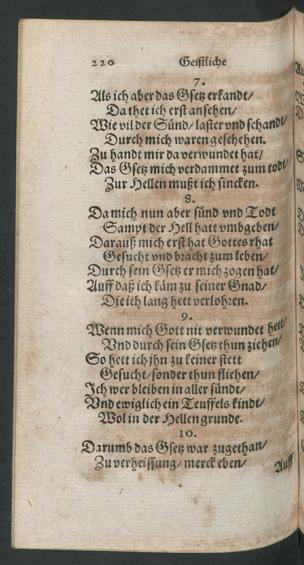 220 Geistliche
7.
Als ich aber das Gsetz erkandt/
Da thet ich erst ansehen/
Wie vil der Sünd/ laster vnd schandt/
Durch mich waren geschehen.
Zu handt mir da verwundet hat/
Das Gsetz mich verdammet zum todt/
Zur Hellen mußt ich sincken.
8.
Da mich nun aber sünd vnd Todt
Sampt der Hell hatt vmbgeben/
Darauß mich erst hat Gottes rhat
Gesucht vnd bracht zum leben/
Durch sein Gsetz er mich zogen hat/
Auff daß ich käm zu seiner Gnad/
Die ich lang hett verlohren.
9.
Wenn mich Gott nit verwundet hett/
Vnd durch sein Gsetz thun ziehen/
So hett ich jhn zu keiner stett
Gesucht/ sonder thun fliehen/
Ich wer bleiben in aller sündt/
Vnd ewiglich ein Teuffels kindt/
Wol in der Hellen grunde.
10.
Darumb das Gsetz war zugethan/
Zu verheissung/ merck eben/
Auff